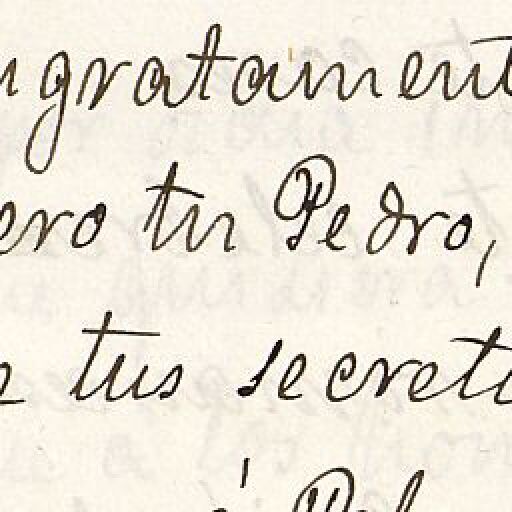 gratament
ero tu Pedro,
tus secret